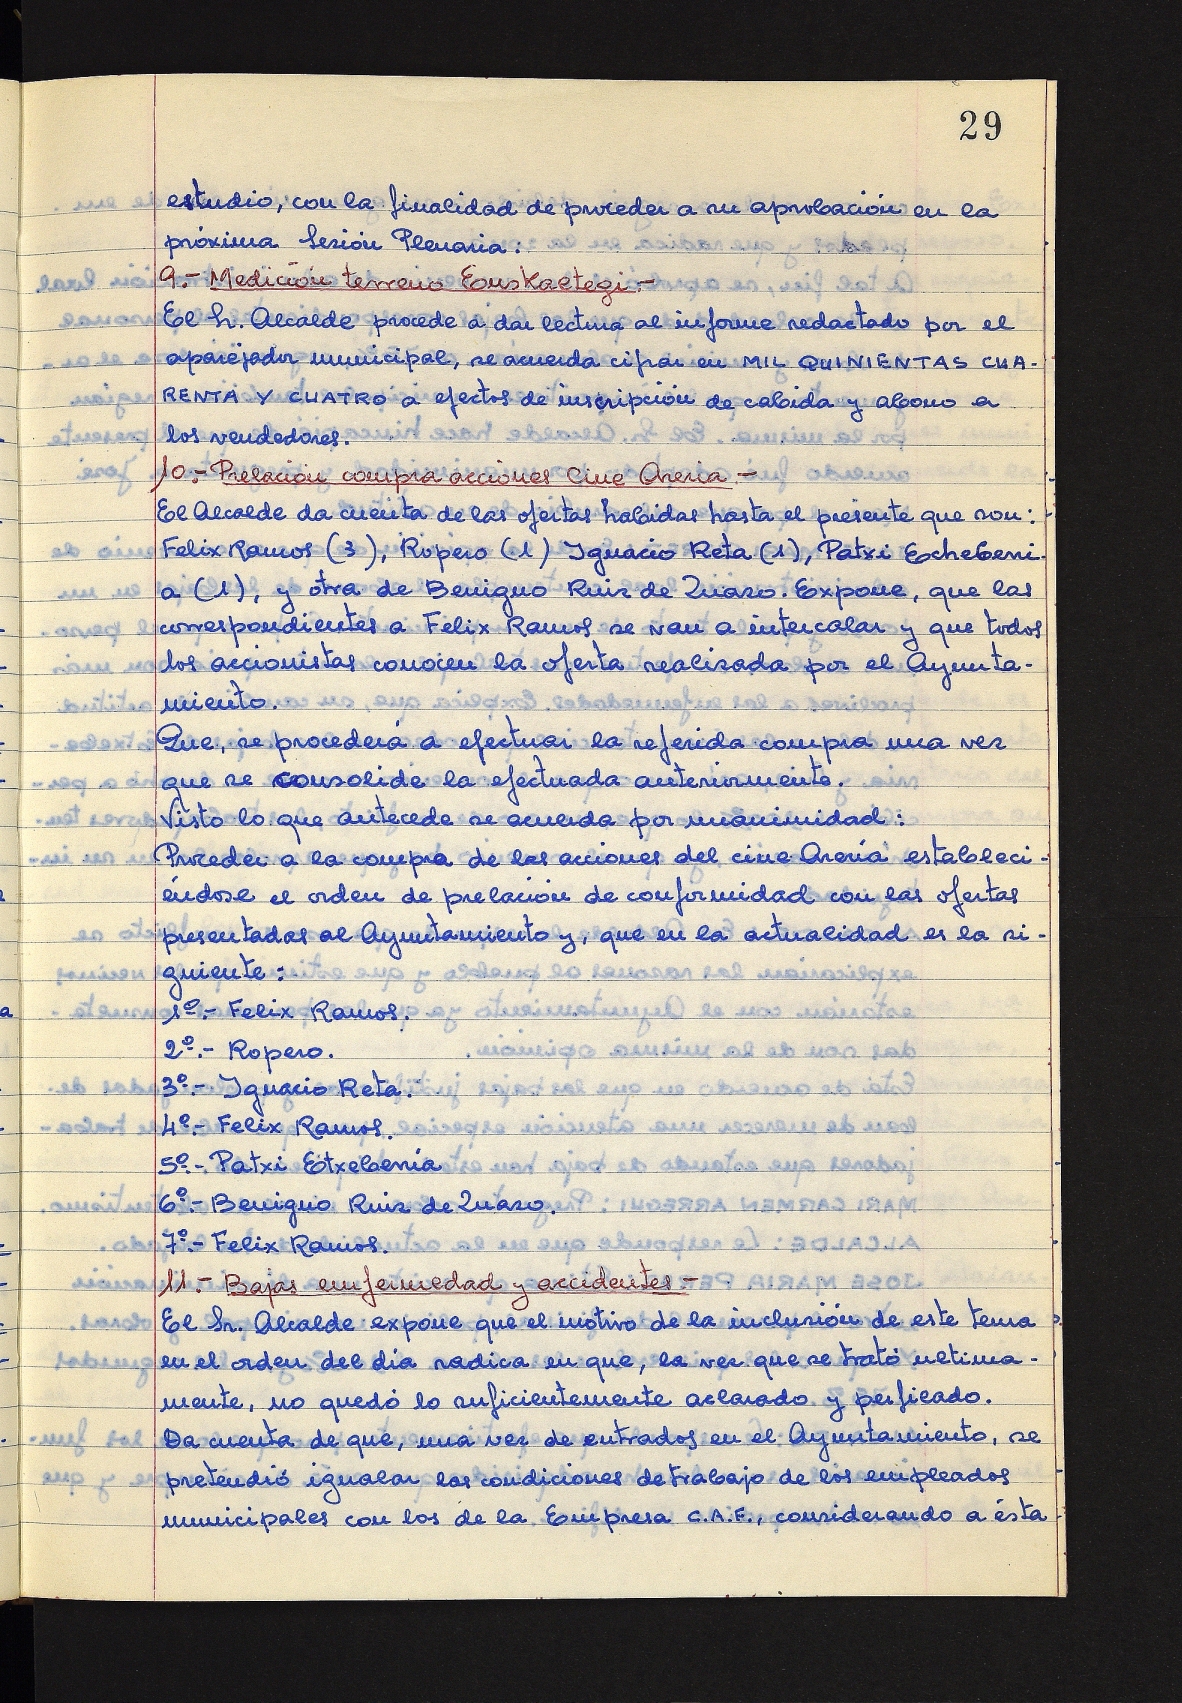 29
estudio, con la finalidad de proceder a su aprobación en la
próxima Sesión Plenaria:
9.- Medición terreno Euskaltegi.-
El Sr. Alcalde procede a dar lectura al informe redactado por el
aparejador municipal, se acuerda cifrar en MIL QUINIENTAS CUA-
RENTA Y CUATRO a efectos de inscripción de cabida y abono a
los vendedores.
10.- Prelación compra acciones Cine Areria.-
El Alcalde da cuenta de las ofertas habidas hasta el presente que son:
Felix Ramos (3), Ropero (1) Ignacio Reta (1), Patxi Echeberri-
a (1), y otra de Benigno Ruiz de Zuazo. Expone, que las
correspondientes a Felix Ramos se van a intercalar y que todos
los accionistas conocen la oferta realizada por el Ayunta-
miento.
Que, se procederá a efectuar la referida compra una vez
que se consolide la efectuada anteriormente.
Visto lo que antecede se acuerda por unanimidad:
Proceder a la compra de las acciones del cine Areria estableci-
éndose el orden de prelación de conformidad con las ofertas
presentadas al Ayuntamiento y, que en la actualidad es la si-
guiente:
1º.- Felix Ramos.
2º.- Ropero.
3º.- Ignacio Reta.
4º.- Felix Ramos.
5º.- Patxi Etxeberria
6º.- Benigno Ruiz de Zuazo.
7º.- Felix Ramos.
11.- Bajas enfermedad y accidentes.-
El Sr. Alcalde expone que el motivo de la inclusión de este tema
en el orden del día radica en que, la vez que se trató ultima-
mente, no quedó lo suficientemente aclarado y perficado.
Da cuenta de que, una vez de entrados en el Ayuntamiento, se
pretendió igualar las condiciones de trabajo de los empleados
municipales con los de la Empresa C.A.F., considerando a ésta